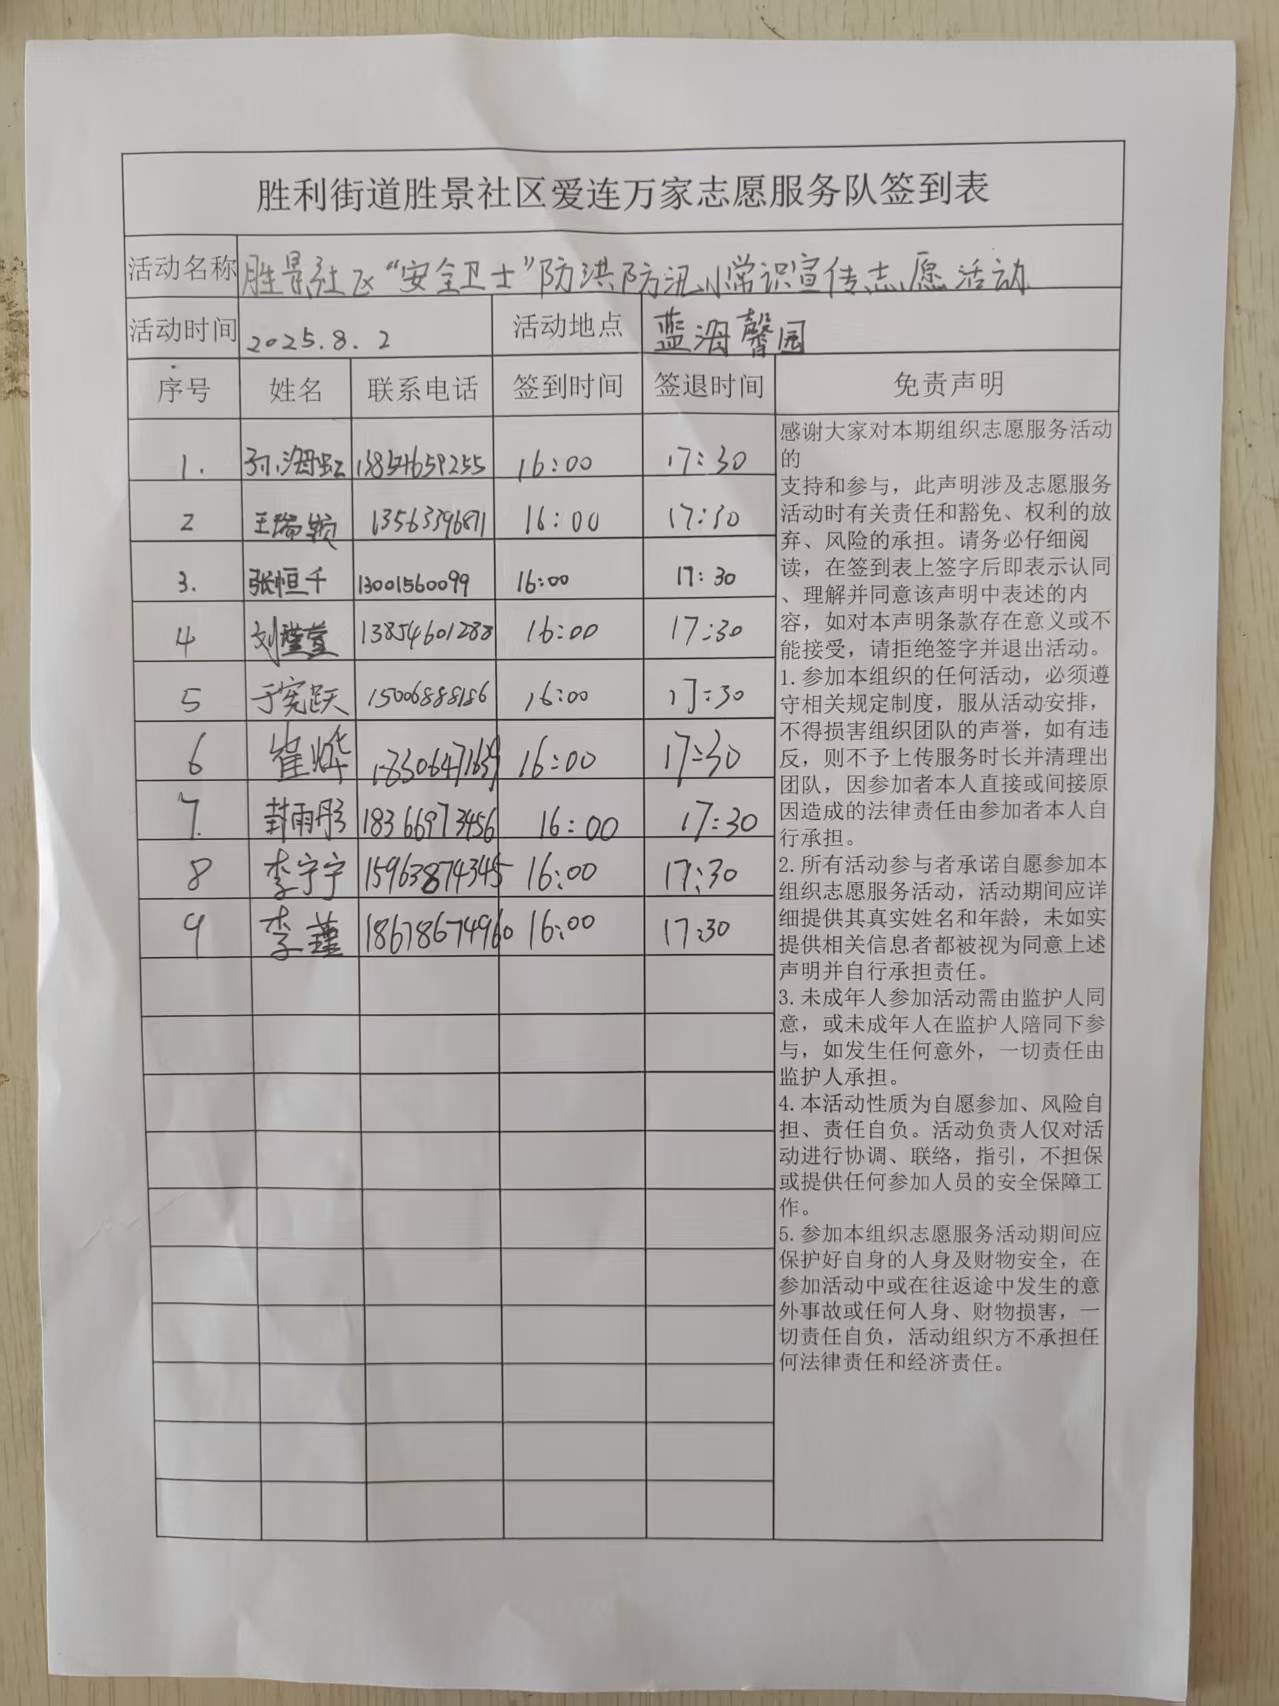 胜利街道胜景社区爱连万家志愿服务队签到表
活动名称 胜景社区“安全卫士”防洪防汛小常识宣传志愿活动
活动时间 2025.8.2 活动地点 蓝海馨园
序号 姓名 联系电话 签到时间 签退时间 免责声明
1. 孙海虹 13854659255 16:00 17:30
2 王瑞颖 13563396871 16:00 17:30
3. 张恒千 13001560099 16:00 17:30
4 刘莹莹 13854601288 16:00 17:30
5 于宪跃 15006888186 16:00 17:30
6 崔烨 18306471659 16:00 17:30
7. 封雨彤 18366973456 16:00 17:30
8 李宁宁 15963874345 16:00 17:30
9 李瑾 18678674960 16:00 17:30
感谢大家对本期组织志愿服务活动
的
支持和参与，此声明涉及志愿服务
活动时有关责任和豁免、权利的放
弃、风险的承担。请务必仔细阅
读，在签到表上签字后即表示认同
、理解并同意该声明中表述的内
容，如对本声明条款存在意义或不
能接受，请拒绝签字并退出活动。
1. 参加本组织的任何活动，必须遵
守相关规定制度，服从活动安排，
不得损害组织团队的声誉，如有违
反，则不予上传服务时长并清理出
团队，因参加者本人直接或间接原
因造成的法律责任由参加者本人自
行承担。
2. 所有活动参与者承诺自愿参加本
组织志愿服务活动，活动期间应详
细提供其真实姓名和年龄，未如实
提供相关信息者都被视为同意上述
声明并自行承担责任。
3. 未成年人参加活动需由监护人同
意，或未成年人在监护人陪同下参
与，如发生任何意外，一切责任由
监护人承担。
4. 本活动性质为自愿参加、风险自
担、责任自负。活动负责人仅对活
动进行协调、联络，指引，不担保
或提供任何参加人员的安全保障工
作。
5. 参加本组织志愿服务活动期间应
保护好自身的人身及财物安全，在
参加活动中或在往返途中发生的意
外事故或任何人身、财物损害，一
切责任自负，活动组织方不承担任
何法律责任和经济责任。